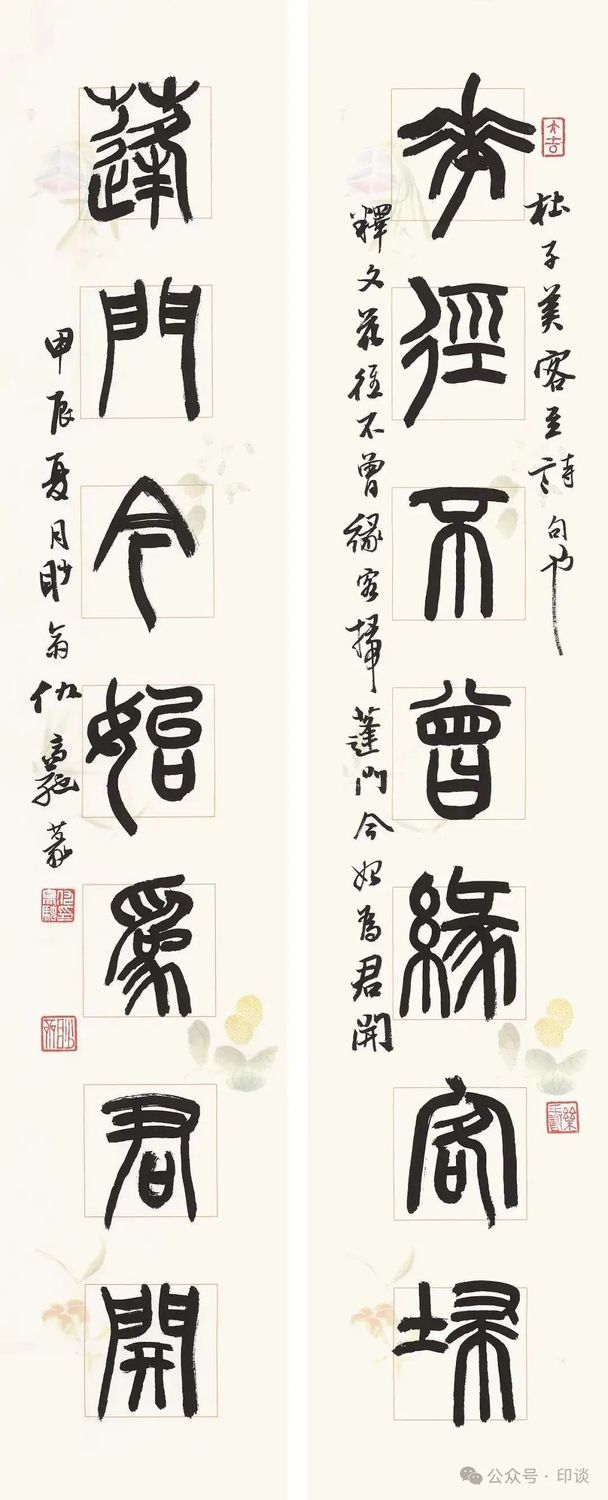 大吉
杜子美客至詩句也
花徑不曾緣客埽
釋文花徑不曾緣客掃蓬門今始為君開
蓬門今始為君開
甲辰夏月眇翁仇高馳篆
公众号·印谈